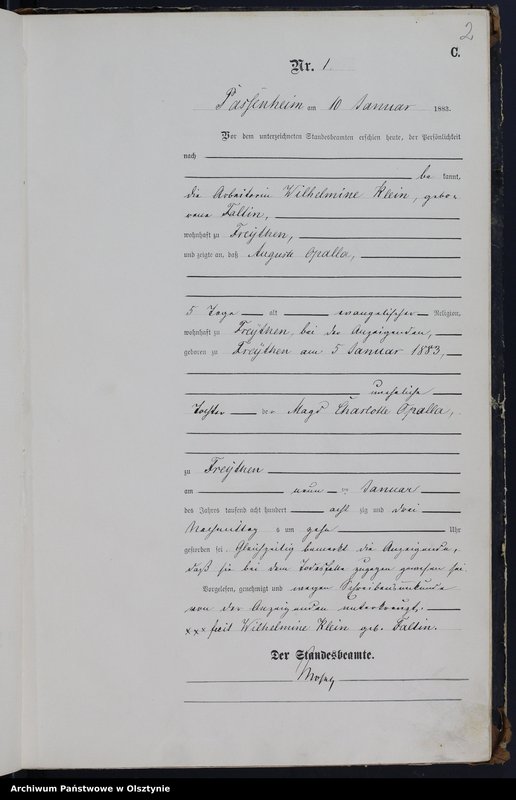 2
C.
Nr. 1
Passenheim am 10 Januar 1883.
Vor dem unterzeichneten Standesbeamten erschien heute, der Persönlichkeit
nach
be kannt,
die Arbeiterin Wilhelmine Klein, gebo-
rene Faltin,
wohnhaft zu Freythen,
und zeigte an, daß Auguste Opalla,
5 Tage alt evangelischer Religion,
wohnhaft zu Freythen, bei der Anzeigenden,
geboren zu Freythen am 5 Januar 1883,
uneheliche
Tochter der Magd Charlotte Opalla,
zu Freythen
am neun ten Januar
des Jahres tausend acht hundert acht zig und drei
Nachmittag s um zehn Uhr
gestorben sei. Gleichzeitig bemerkt die Anzeigende,
daß sie bei dem Todesfalle zugegen gewesen sei.
Vorgelesen, genehmigt und wegen Schreibensunkunde
von der Anzeigenden unterkreuzt.
xxx Wilhelmine Klein geb. Faltin.
Der Standesbeamte.
Archiwum Państwowe w Olsztynie